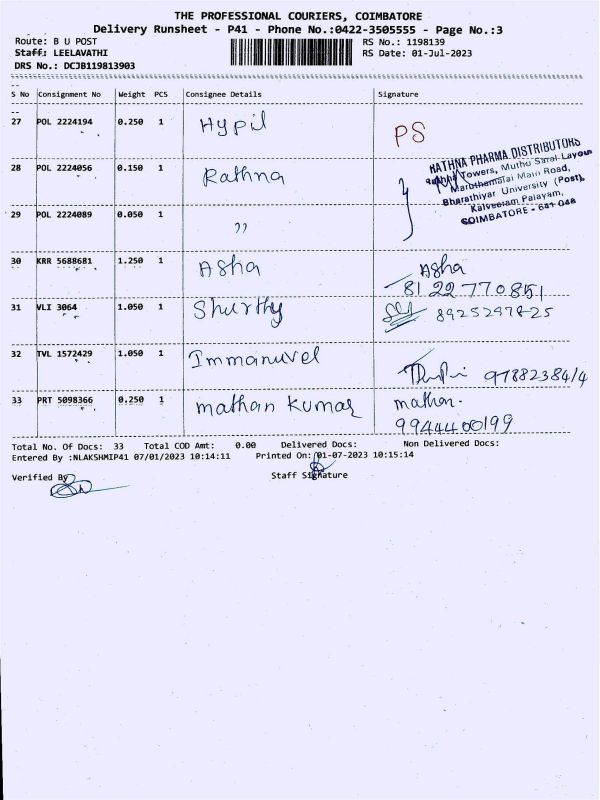 THE PROFESSIONAL COURIERS, COIMBATORE
Delivery Runsheet - P41 - Phone No.:0422-3505555 - Page No.:3
Route: B U POST RS No.: 1198139
Staff: LEELAVATHI RS Date: 01-Jul-2023
DRS No.: DCJB119813903
S No Consignment No Weight PCS Consignee Details Signature
27 POL 2224194 0.250 1 Hypil PS
28 POL 2224056 0.150 1 Rathna
RATHNA PHARMA DISTRIBUTORS
Towers, Muthu Saral Layout
Marothamalai Main Road,
Bharathiyar University (Post),
Kalveeram Palayam,
COIMBATORE - 641 046
29 POL 2224089 0.050 1 ,,
30 KRR 5688681 1.250 1 Asha Asha
81 22 770851
31 VLI 3064 1.050 1 Shurthy 8925297825
32 TVL 1572429 1.050 1 Immanuvel 9788238414
33 PRT 5098366 0.250 1 mathan kumar mathan.
9944400199
Total No. Of Docs: 33 Total COD Amt: 0.00 Delivered Docs: Non Delivered Docs:
Entered By :NLAKSHMIP41 07/01/2023 10:14:11 Printed On: 01-07-2023 10:15:14
Verified By Staff Signature